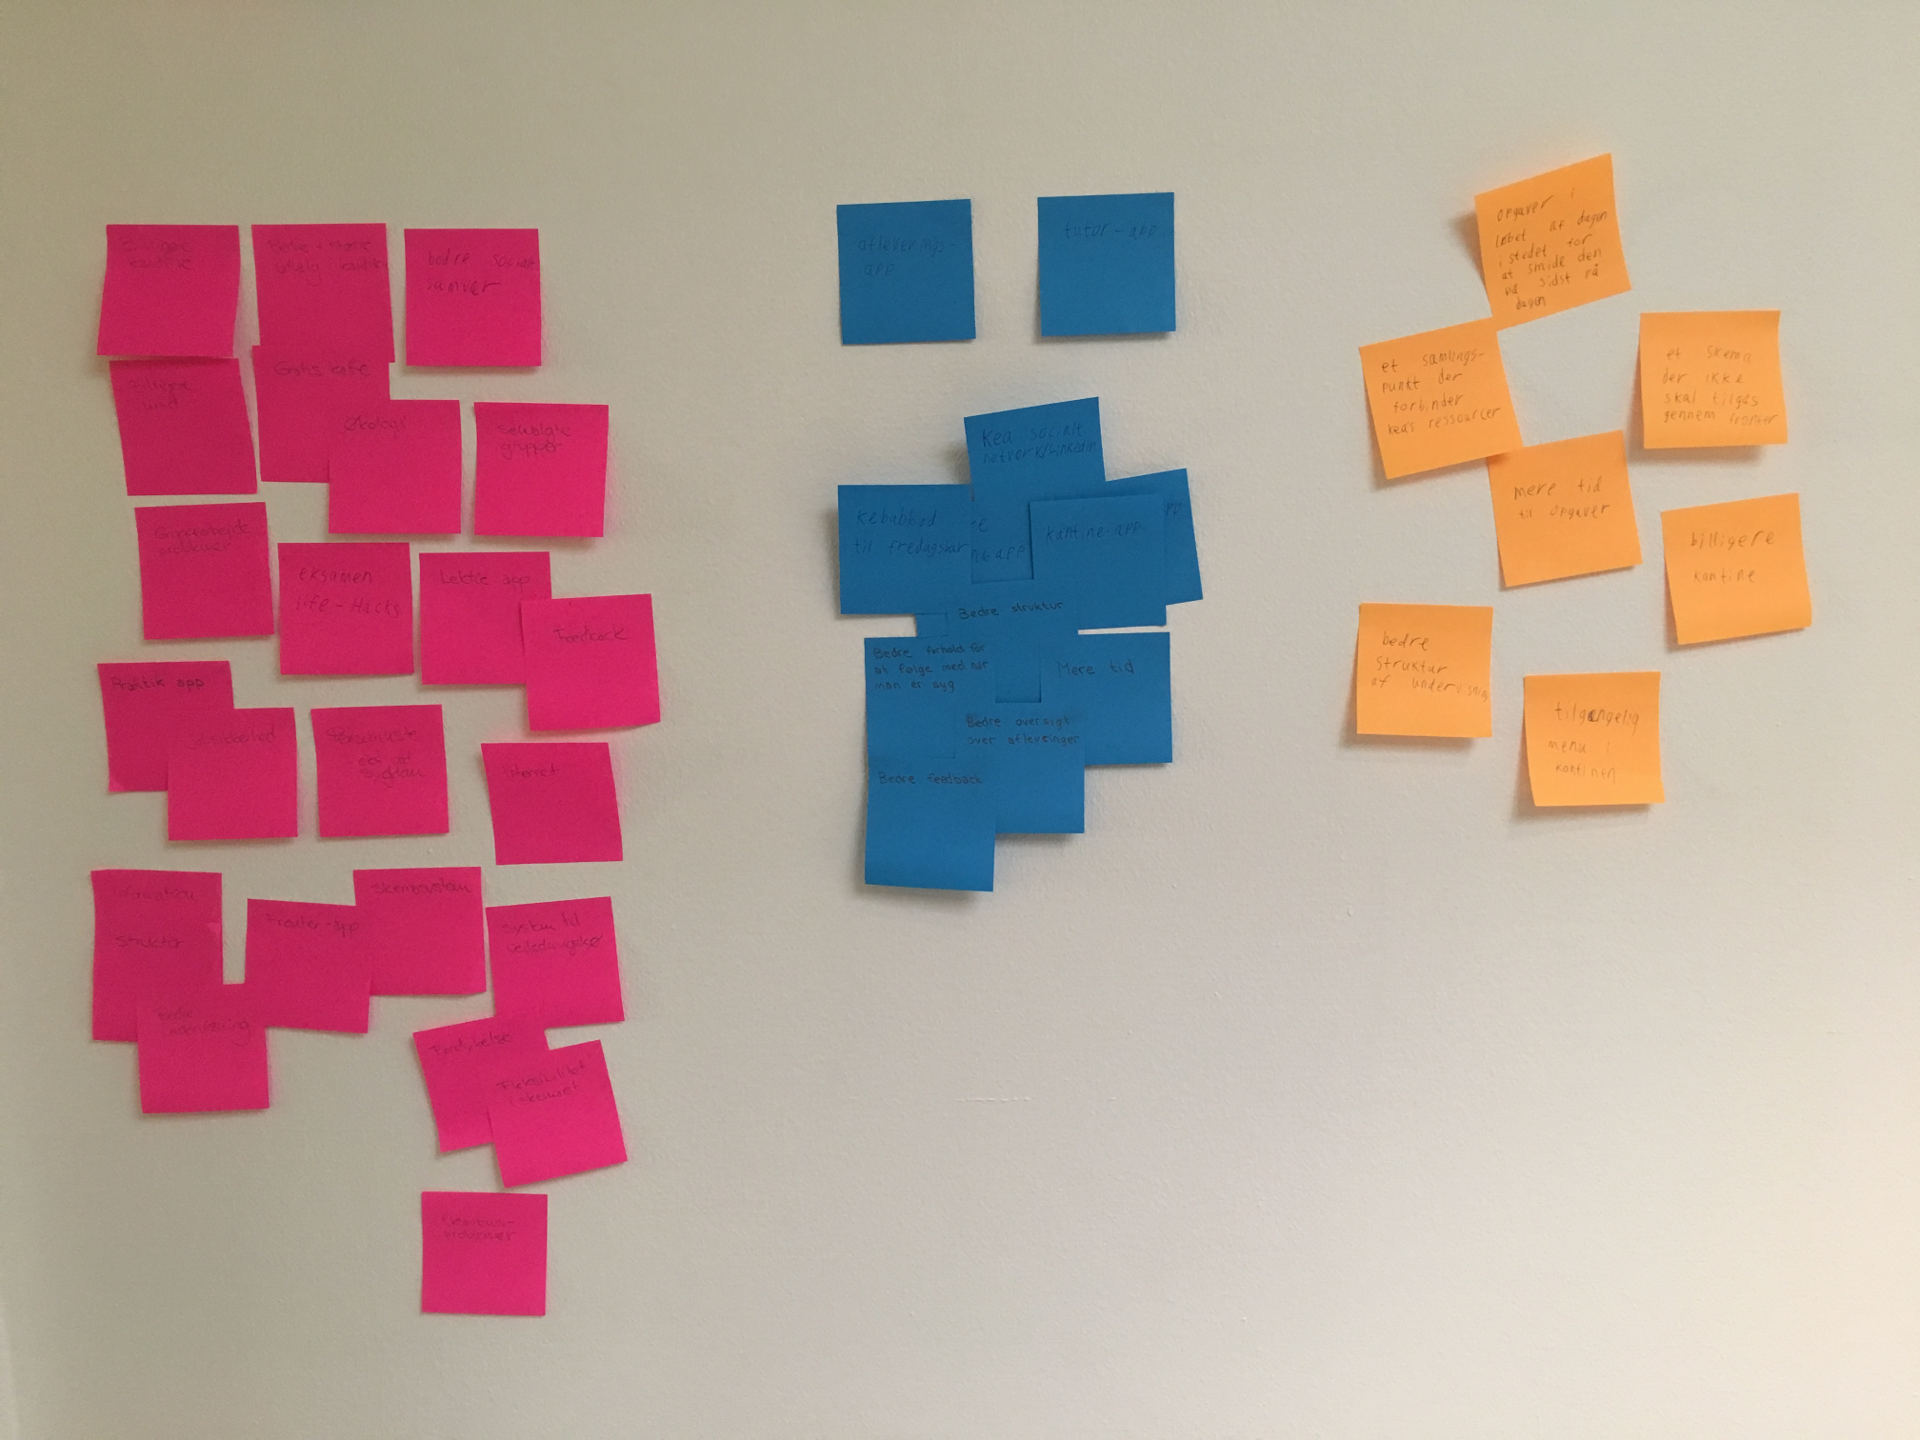 Billigere
kantine
Bedre + større
udvalg i kantinen
bedre socialt
samvær
Billigere
Gratis kaffe
Økologi
Selvblate
grupper
Gruppearbejde
eksamen
life-Hacks
Lektie app
Feedback
Praktik app
Jobsikkerhed
Internet
information
struktur
Fronter-app
Skemasystem
System til
Bedre
Fordybelse
Fleksibilitet
afleverings-
app
tutor-app
Kea socialt
netværk/Linkedin
kebabbod
til fredagsbar
ne-app
kantine-app
pp
Bedre struktur
Bedre forhold for
at følge med når
man er syg
Mere tid
Bedre oversigt
over afleveringer
Bedre feedback
opgaver i
løbet af dagen
istedet for
at smide den
på sidst på
dagen
et samlings-
punkt der
forbinder
kea's ressourcer
et skema
der ikke
skal tilgås
gennem fronter
mere tid
til opgaver
billigere
kantine
bedre
struktur
af undervisning
tilgængelig
menu i
kantinen